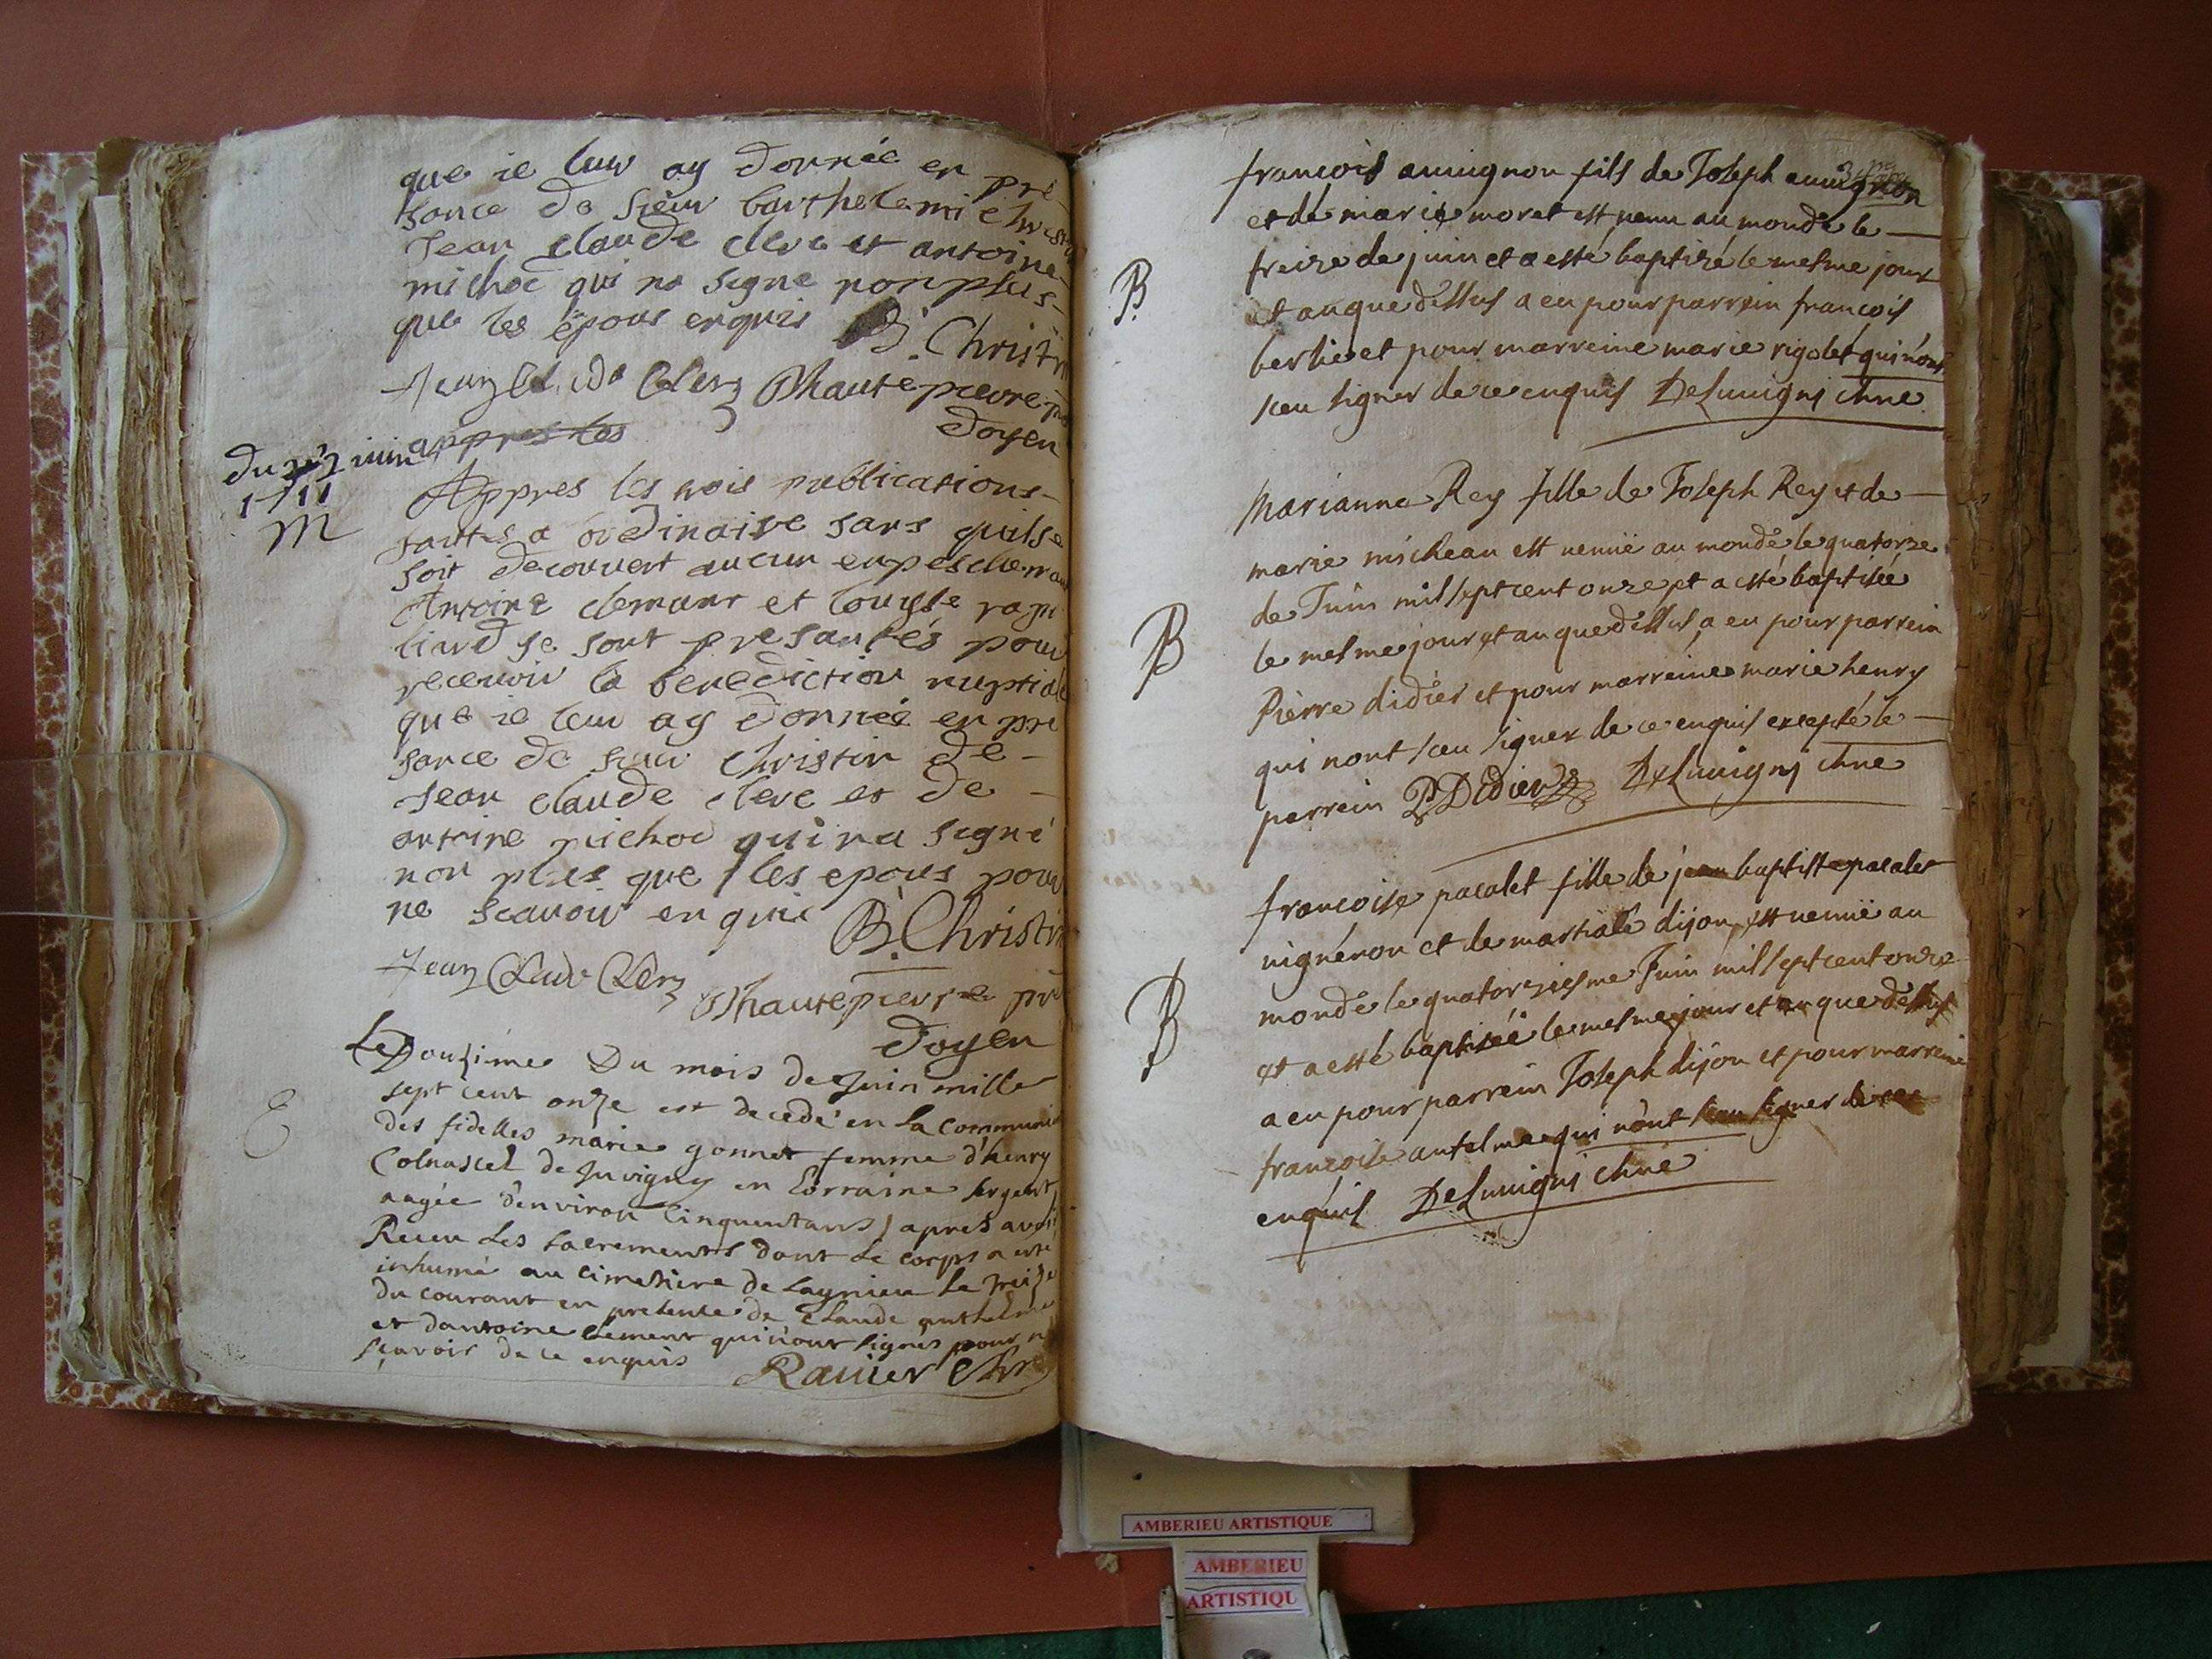 que ie leur ay donnée en pre
sance de sieur barthelemi christin
Jean claude clerc et antoine
michod qui na signe non plus
que les epous enquis B. Christin
Jean Claude Clerc Phautepierre pre
doyen
appres les
du juin
1711
M
Appres les trois publications
faittes a ordinaire sans quil se
soit decouvert aucun enpeschemant
Antoine clemant et louyse
liard se sont presantés pour
recevoir la benediction nuptiale
que ie leur ay donnée en pre
sance de sieur christin de
Jean claude clerc et de
antoine michod qui na signé
non plus que les epous pour
ne scauoir enquis B. Christin
Jean Claude Clerc
Phautepierre pre
doyen
Le Douzime Du mois de Juin mille
sept cent onze est decedé en la Communion
des fidelles marie gonnet femme d'henry
Colnascel de Juvigny en Lorraine sergent
aagée d'environ Cinquentans, apres avoir
Receu Les sacrements dont Le corps a eté
inhumé au Cimetiere de Lagnieu Le treize
du courant en presence de Claude anthelme
et dantoine Clement qui n'ont signés pour ne
sçavoir de ce enquis Ravier
francois auuignon fils de Joseph auuignon
et de marie moret est venu au monde le
treize de juin et a esté baptizé le mesme jour
et an que dessus a eu pour parrein francois
berlie et pour marreine marie rigolet qui n'ont
sceu signer de ce enquis DeLuuigni chne
B
Marianne Rey fille de Joseph Rey et de
marie micheau est venuë au monde le quatorze
de Juin mil sept cent onze et a esté baptisée
le mesme jour et an que dessus, a eu pour parrein
Pierre didier et pour marreine marie henry
qui nont sceu signer de ce enquis excepté le
parrein P. Didier DeLuuigni chne
B
francoise pacalet fille de jean baptiste pacalet
vigneron et de martiale dijon est venuë au
monde le quatorziesme Juin mil sept cent onze
et a esté baptisée le mesme jour et an que dessus
a eu pour parrein Joseph dijon et pour marreine
francoise antelme qui n'ont sceu signer de ce
enquis DeLuuigni chne
B
AMBERIEU ARTISTIQUE
AMBERIEU
ARTISTIQU